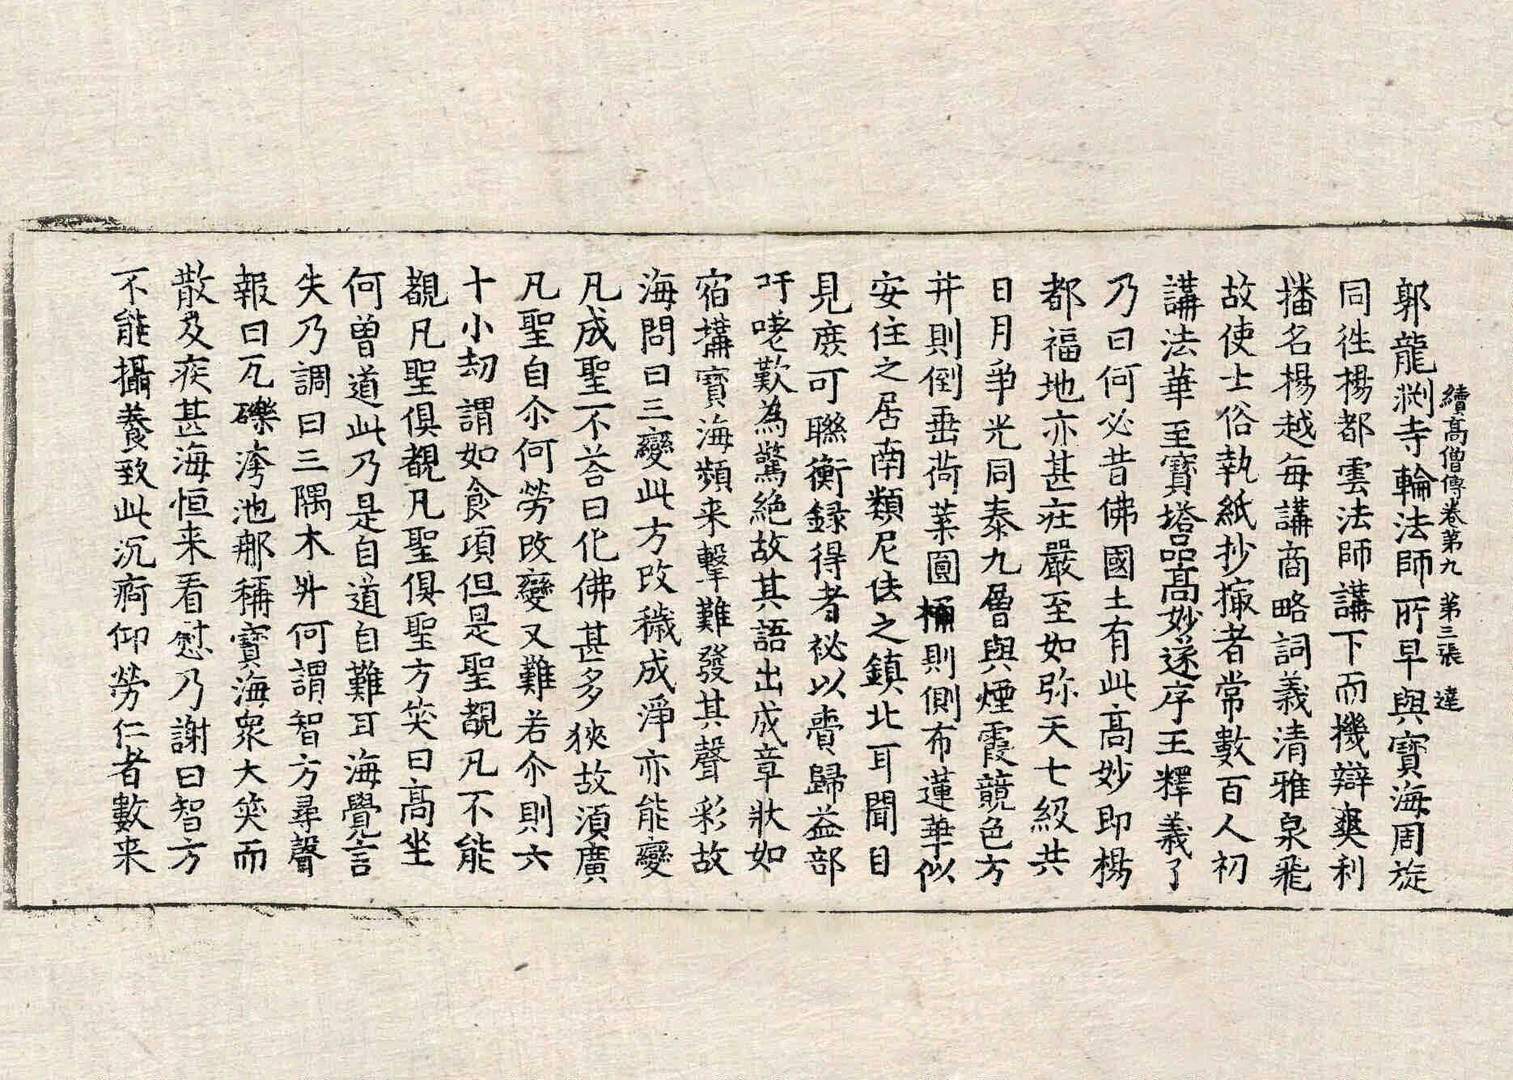 續高僧傳卷第九　第三張　達
郭龍渕寺輪法師所早與寶海周旋
同徃楊都雲法師講下而機辯爽利
播名楊越每講商略詞義清雅泉飛
故使士俗執紙抄撮者常數百人初
講法華至寶塔品高妙遂序王釋義了
乃曰何必昔佛國土有此高妙即楊
都福地亦甚莊嚴至如弥天七級共
日月爭光同泰九層與煙霞競色方
井則倒垂荷葉圓桶則側布蓮華似
安住之居南類尼佉之鎮北耳聞目
見庶可聯衡録得者祕以賷歸益部
吁嗟歎為驚絶故其語出成章狀如
宿搆寶海頻来擊難發其聲彩故
海問曰三變此方改穢成淨亦能變
凡成聖不荅曰化佛甚多狹故湏廣
凡聖自尒何勞改變又難若尒則六
十小劫謂如食頃但是聖覩凡不能
覩凡聖俱覩凡聖俱聖方笑曰高坐
何曽道此乃是自道自難耳海覺言
失乃調曰三隅木斗何謂智方尋聲
報曰瓦礫洿池那稱寶海衆大笑而
散及疾甚海恒来看慰乃謝曰智方
不能攝養致此沉痾仰勞仁者數来